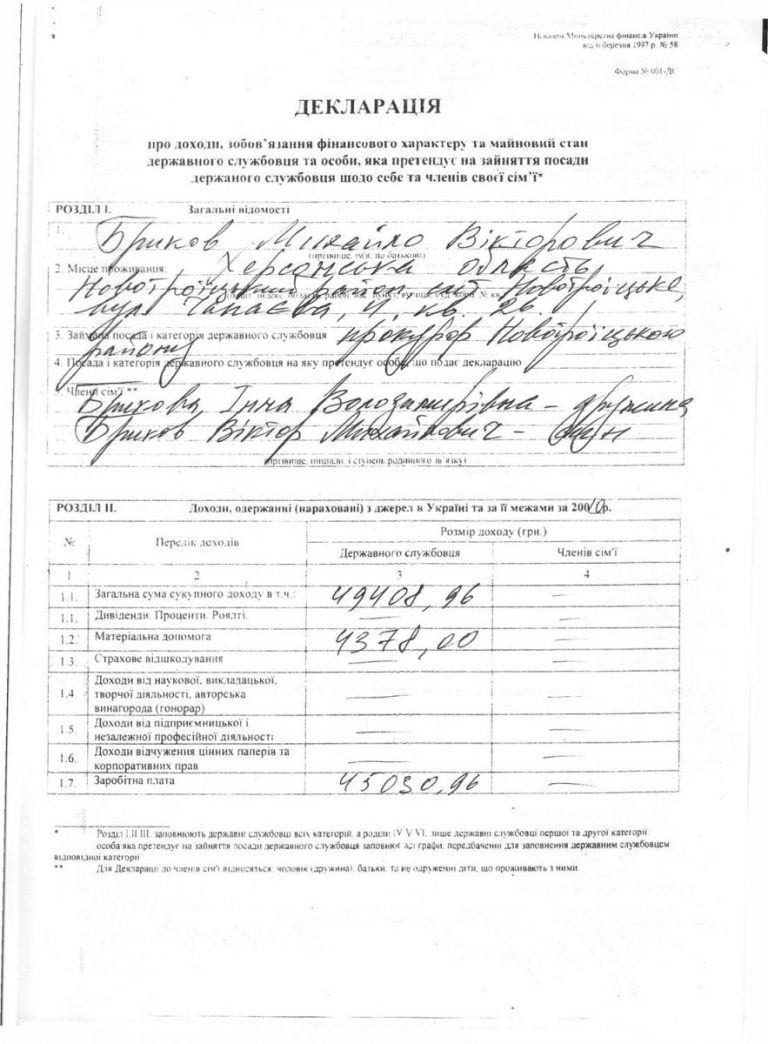 Наказом Міністерства фінансів України
від 6 березня 1997 р. № 58
Форма № 001-ДС
ДЕКЛАРАЦІЯ
про доходи, зобов'язання фінансового характеру та майновий стан
державного службовця та особи, яка претендує на зайняття посади
держаного службовця щодо себе та членів своєї сім'ї*
РОЗДІЛ І. Загальні відомості
1. Бриков Михайло Вікторович
(прізвище, ім'я, по батькові)
2. Місце проживання: Херсонська область,
Новотроїцький район, смт Новотроїцьке,
вул. Чапаєва, 4, кв. 26.
3. Займана посада і категорія державного службовця прокурор Новотроїцького
району
4. Посада і категорія державного службовця на яку претендує особа, що подає декларацію
5. Члени сім'ї **
Брикова Інна Володимирівна – дружина
Бриков Віктор Михайлович – син
(прізвище, ініціали, і ступень родинного зв'язку)
РОЗДІЛ ІІ. Доходи, одержанні (нараховані) з джерел в Україні та за її межами за 2010р.
№ Перелік доходів Розмір доходу (грн.)
Державного службовця Членів сім'ї
1 2 3 4
1.1. Загальна сума сукупного доходу в т.ч.: 49408,96 —
1.1. Дивіденди. Проценти. Роялті. — —
1.2. Матеріальна допомога 4378,00 —
1.3 Страхове відшкодування — —
1.4. Доходи від наукової, викладацької,
творчої діяльності, авторська
винагорода (гонорар) — —
1.5. Доходи від підприємницької і
незалежної професійної діяльності — —
1.6. Доходи відчуження цінних паперів та
корпоративних прав — —
1.7. Заробітна плата 45030,96 —
* Розділ І,ІІ,ІІІ, заповнюють державні службовці всіх категорій, а розділи IV V VI, лише державні службовці першої та другої категорії
особа яка претендує на зайняття посади державного службовця заповнює всі графи, передбаченні для заповнення державним службовцем
відповідної категорії
** Для Декларації до членів сім'ї відносяться: чоловік (дружина), батьки, та не одруженні діти, що проживають з ними